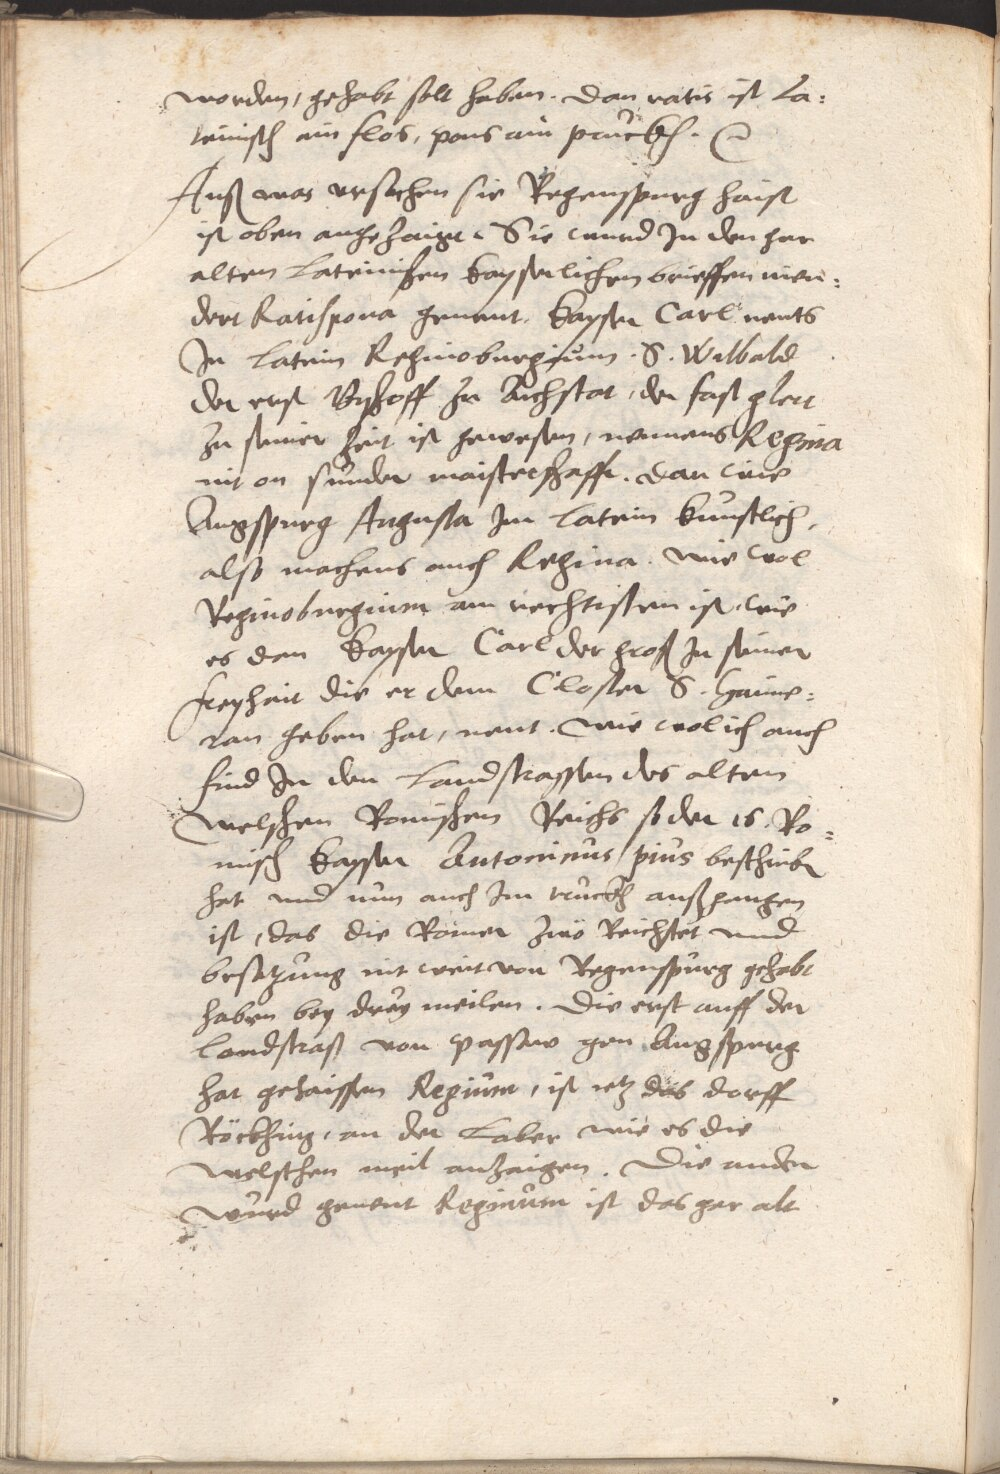 worden, gehabt solt haben. dan ratis ist La=
teinisch ain flos, pons ain pruckh.
Auß was ursachen sie Regenspurg haist
ist oben angezaigt. Sie wurd In den gar
alten Lateinischen kayserlichen brieffen nien=
dert Ratispona genent. kayser Carl nents
In Latein Reginoburgium. S. Wilbald
der erst Byschoff zu Aichstat, der fast glert
zu seiner zeit ist gewesen, nennens Regina
nit on sunder maisterschafft. dan wie
Augspurg Augusta Im latein kunstlich,
also machens auch Regina. wie wol
Reginoburgium am rechtisten ist, wie
es dan kayser Carl der groß In seiner
freyhait die er dem Closter S. Haime=
ran geben hat, nent. wie wol ich auch
find In den Landstrassen des alten
welschen Romischen Reichs so der 16. Ro=
misch kayser Antoninus pius beschriebn
hat und nun auch Im truckh außgangen
ist, das die Römer zwo Reichstet und
besatzung nit weit von Regenspurg gehabt
haben bey drey meilen. Die erst auff der
Landstraß von passaw gen Augspurg
hat gehaissen Regium, ist ietz das dorff
Röckhing, an der Laber wie es die
welschen meil anzaigen. Die ander
wurd genent Reginum ist das gar alt